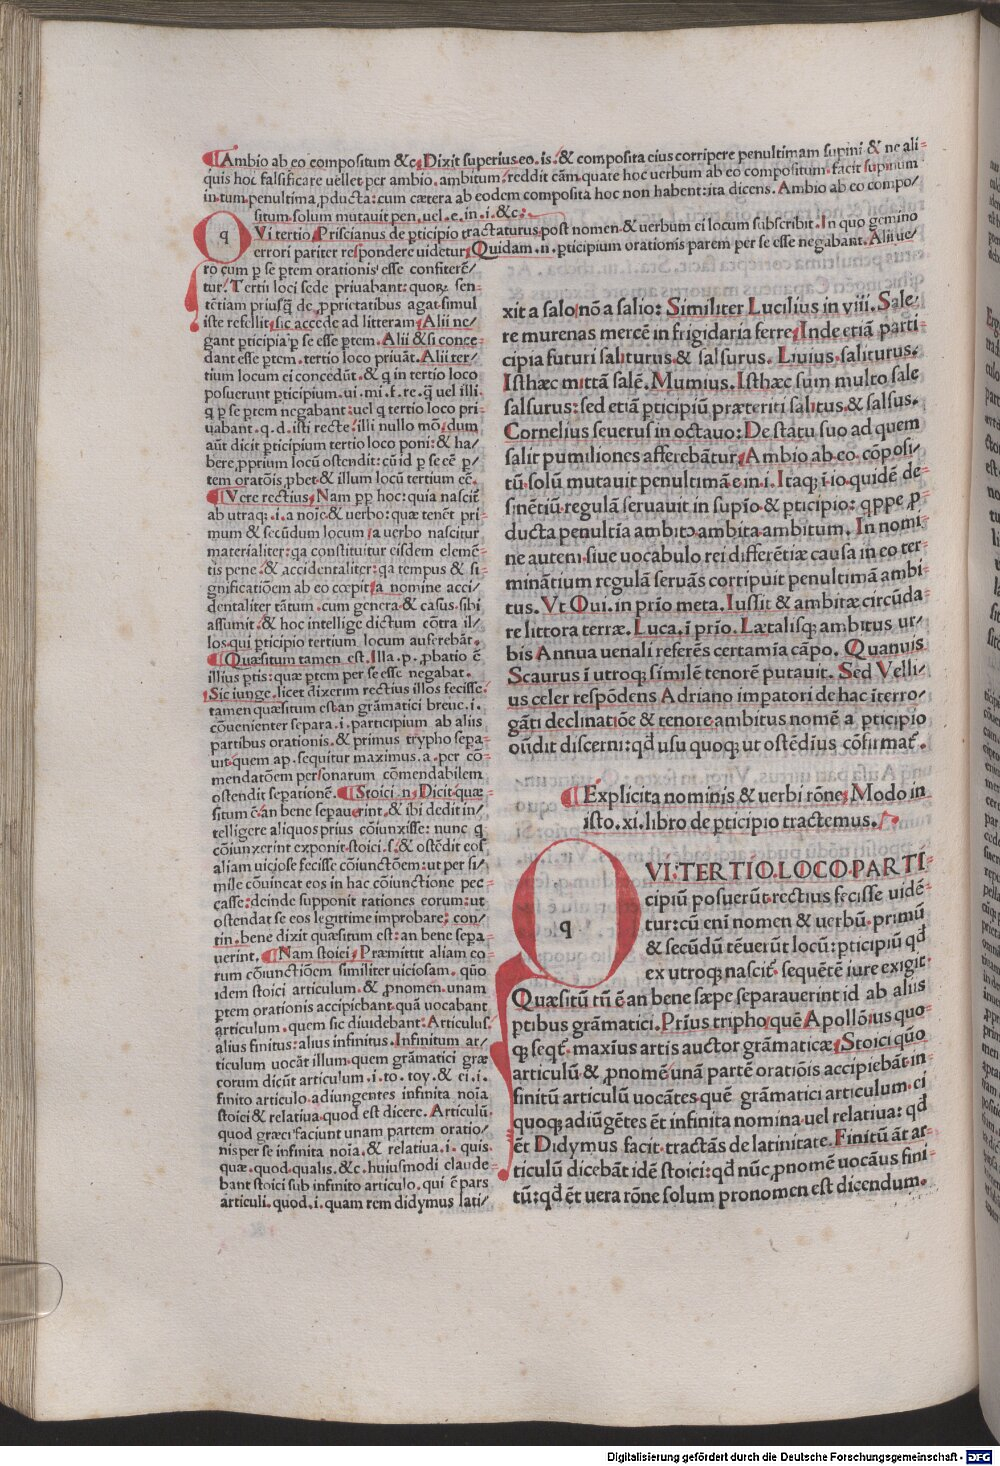 Ambio ab eo compositum &c. Dixit superius eo. is. & composita eius corripere penultimam supini & ne ali-
quis hoc falsificare uellet per ambio. ambitum. reddit cām quare hoc uerbum ab eo compositum facit supinum
in tum penultima ꝓducta: cum cætera ab eodem composita hoc non habent: ita dicens. Ambio ab eo compo/
situm solum mutauit pen. uel. e. in. i. &c.
QVi tertio. Priscianus de ꝑticipio tractaturus post nomen & uerbum ei locum subscribit. In quo gemino
errori pariter respondere uidetur. Quidam. n. ꝑticipium orationis parem per se esse negabant. Alii ue/
ro eum ꝑ se ꝑtem orationis esse confiterē-
tur. Tertii loci sede priuabant: quoꝝ sen-
tētiam priusq̄ de ꝓprietatibus agat simul
iste refellit. sic accede ad litteram. Alii ne/
gant ꝑticipia ꝑ se esse ꝑtem. Alii & si conce-
dant esse ꝑtem. tertio loco priuāt. Alii ter/
tium locum ei concedūt. & q in tertio loco
posuerunt ꝑticipium. ui. mi. f. re. q̄ uel illi.
q ꝑ se ꝑtem negabant: uel q tertio loco pri-
uabant. q. d. isti recte. illi nullo mō. dum
aūt dicit ꝑticipium tertio loco poni: & ha/
bere ꝓprium locū ostendit: cū id ꝑ se eē ꝑ/
tem oratōis ꝓbet & illum locū tertium eē.
Vere rectius. Nam ꝑꝑ hoc: quia nascit̄
ab utraq;. i. a noīe & uerbo: quæ tenēt pri-
mum & secūdum locum. a uerbo nascitur
materialiter: qa constituitur eisdem elemē-
tis pene. & accidentaliter: qa tempus & si-
gnificatiōem ab eo cœpit. a nomine acci/
dentaliter tātum. cum genera & casus sibi
assumit. & hoc intellige dictum cōtra il/
los qui ꝑticipio tertium locum auferebāt.
Quæsitum tamen est. Illa. p. ꝓbatio ē
illius ꝑtis: quæ ꝑtem per se esse negabat.
Sic iunge. licet dixerim rectius illos fecisse.
tamen quæsitum est an grāmatici breue. i.
cōuenienter separa. i. participium ab aliis
partibus orationis. & primus trypho sepa-
uit quem ap. sequitur maximus. a. per cō-
mendatōem personarum cōmendabilem
ostendit sepationē. Stoici. n. Dicit quæ-
situm ē: an bene sepauerint. & ibi dedit in/
telligere aliquos prius cōiunxisse: nunc q
cōiunxerint exponit. stoici. s. & ostēdit eos
aliam uiciose fecisse cōiunctōem: ut per si/
mile cōuincat eos in hac cōiunctione pec-
casse: deinde supponit rationes eorum: ut
ostendat se eos legittime improbare. con/
tin. bene dixit quæsitum est: an bene sepa-
uerint. Nam stoici. Præmittit aliam eo-
rum cōiunctiōem similiter uiciosam. quo
idem stoici articulum. & ꝓnomen. unam
ꝑtem orationis accipiebant quā uocabant
articulum. quem sic diuidebant: Articulus.
alius finitus: alius infinitus. Infinitum ar/
ticulum uocāt illum quem grāmatici græ
corum dicūt articulum. i. to. toy. & ci. i.
finito articulo adiungentes infinita noīa
stoici & relatiua quod est dicere. Articulū.
quod græci faciunt unam partem oratio/
nis per se infinita noīa. & relatiua. i. quis
quæ. quod qualis. &c. huiusmodi claude-
bant stoici sub infinito articulo. qui ē pars
articuli. quod. i. quam rem didymus lati/
xit a salo nō a salio: Similiter Lucilius in viii. Sale/
re murenas mercē in frigidaria ferre. Inde etiā parti-
cipia futuri saliturus & salsurus. Liuius. saliturus.
Isthæc mittā salē. Mumius. Isthæc sum multo sale
salsurus: sed etiā ꝑticipiū præteriti salitus & salsus.
Cornelius seuerus in octauo: De statu suo ad quem
salit pumiliones afferebātur. Ambio ab eo cōposi-
tū solū mutauit penultimā e in i. Itaq; ī io quidē de-
sinētiū regulā seruauit in supīo & ꝑticipio: qppe ꝓ-
ducta penultīa ambitꝰ ambita ambitum. In nomi-
ne autem siue uocabulo rei differētiæ causa in eo ter-
minātium regulā seruās corripuit penultimā ambi-
tus. Vt Oui. in prīo meta. Iussit & ambitæ circūda-
re littora terræ. Luca. ī prīo. Lætalisq; ambitus ur-
bis Annua uenali referēs certamīa cāpo. Quanuis
Scaurus ī utroq; similē tenorē putauit. Sed Velli/
us celer respōdens Adriano imperatori de hac īterro/
gāti declinatiōe & tenore ambitus nomē a ꝑticipio
oūdit discerni: qd̄ usu quoq; ut ostēdīus cōfirmat̄.
Explicita nominis & uerbi rōne. Modo in
isto. xi. libro de ꝑticipio tractemus.
QVI TERTIO LOCO PARTI-
cipiū posuerūt rectius fecisse uidē-
tur: cū enī nomen & uerbū primū
& secūdū tēuerūt locū: ꝑticipiū qd̄
ex utroq; nascit̄. sequētē iure exigit.
Quæsitū tn̄ ē an bene sæpe separauerint id ab aliis
ꝑtibus grāmatici. Prīus tripho quē Apollōius quo-
q; seqt̄. maxīus artis auctor grāmaticæ. Stoici quō
articulū & ꝓnomē unā partē oratiōis accipiebāt in-
finitū articulū uocātes quē grāmatici articulum. ci
quoq; adiūgētes ēt infinita nomina uel relatiua: qd̄
ēt Didymus facit tractās de latinitate. Finitū āt ar-
ticulū dicebāt idē stoici: qd̄ nūc ꝓnomē uocāus fini-
tū: qd̄ ēt uera rōne solum pronomen est dicendum.
Digitalisierung gefördert durch die Deutsche Forschungsgemeinschaft - DFG